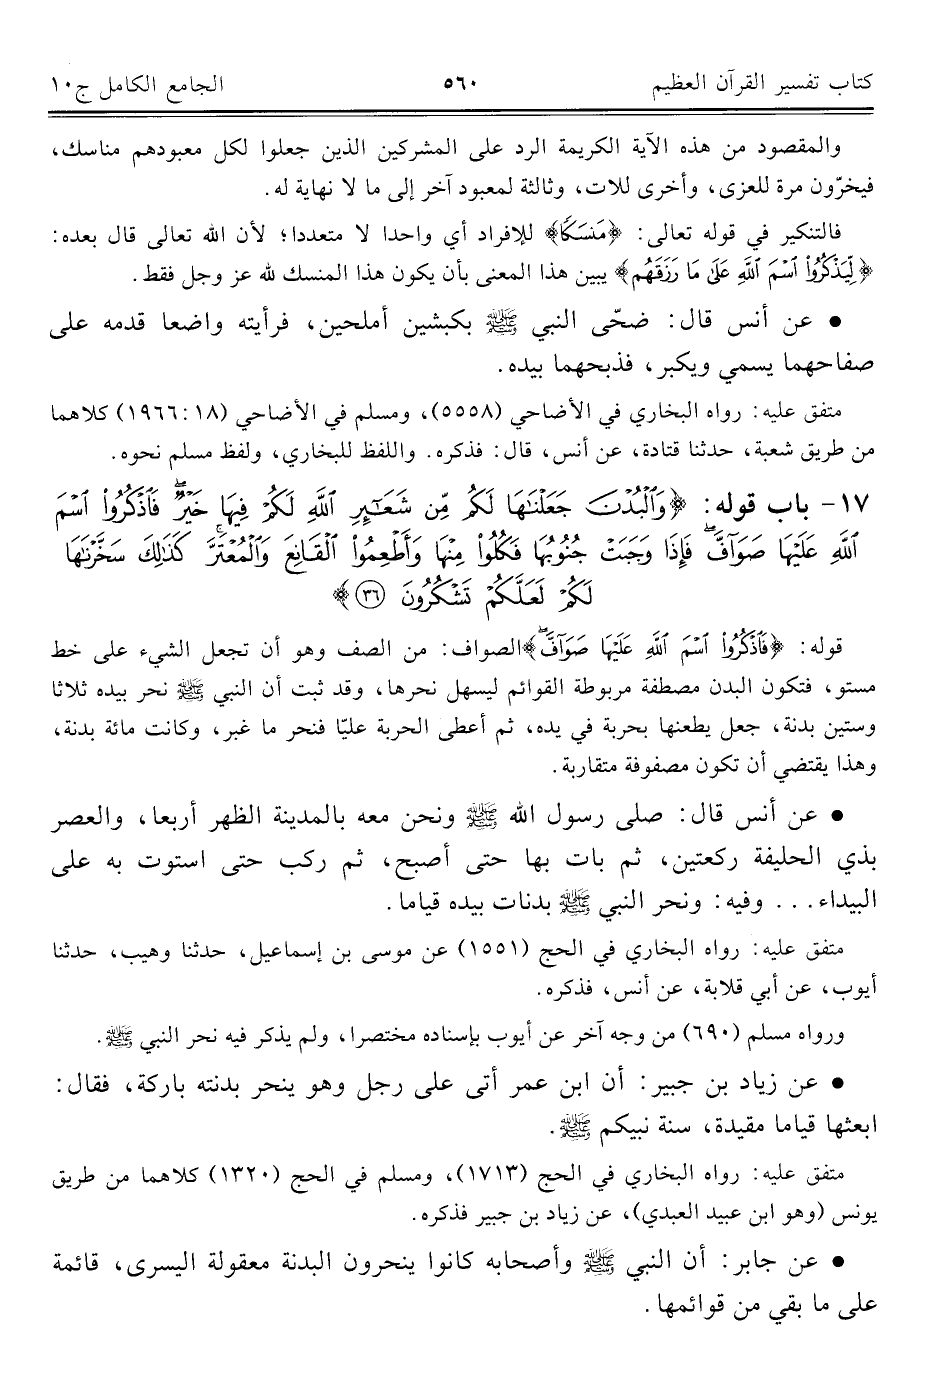 كتاب تفسير القرآن العظيم ٥٦٠ الجامع الكامل ج١٠
والمقصود من هذه الآية الكريمة الرد على المشركين الذين جعلوا لكل معبودهم مناسك،
فيخرّون مرة للعزى، وأخرى للات، وثالثة لمعبود آخر إلى ما لا نهاية له.
فالتنكير في قوله تعالى: ﴿مَنسَكًا﴾ للإفراد أي واحدا لا متعددا؛ لأن الله تعالى قال بعده:
﴿لِّيَذْكُرُوا۟ ٱسْمَ ٱللَّهِ عَلَىٰ مَا رَزَقَهُم﴾ يبين هذا المعنى بأن يكون هذا المنسك لله عز وجل فقط.
• عن أنس قال: ضحّى النبي ﷺ بكبشين أملحين، فرأيته واضعا قدمه على
صفاحهما يسمي ويكبر، فذبحهما بيده.
متفق عليه: رواه البخاري في الأضاحي (٥٥٥٨)، ومسلم في الأضاحي (١٨:١٩٦٦) كلاهما
من طريق شعبة، حدثنا قتادة، عن أنس، قال: فذكره. واللفظ للبخاري، ولفظ مسلم نحوه.
١٧- باب قوله: ﴿وَٱلْبُدْنَ جَعَلْنَٰهَا لَكُم مِّن شَعَٰٓئِرِ ٱللَّهِ لَكُمْ فِيهَا خَيْرٌ ۖ فَٱذْكُرُوا۟ ٱسْمَ
ٱللَّهِ عَلَيْهَا صَوَآفَّ ۖ فَإِذَا وَجَبَتْ جُنُوبُهَا فَكُلُوا۟ مِنْهَا وَأَطْعِمُوا۟ ٱلْقَانِعَ وَٱلْمُعْتَرَّ ۚ كَذَٰلِكَ سَخَّرْنَٰهَا
لَكُمْ لَعَلَّكُمْ تَشْكُرُونَ ٣٦﴾
قوله: ﴿فَٱذْكُرُوا۟ ٱسْمَ ٱللَّهِ عَلَيْهَا صَوَآفَّ ۖ﴾الصواف: من الصف وهو أن تجعل الشيء على خط
مستو، فتكون البدن مصطفة مربوطة القوائم ليسهل نحرها، وقد ثبت أن النبي ﷺ نحر بيده ثلاثا
وستين بدنة، جعل يطعنها بحربة في يده، ثم أعطى الحربة عليّا فنحر ما غبر، وكانت مائة بدنة،
وهذا يقتضي أن تكون مصفوفة متقاربة.
• عن أنس قال: صلى رسول الله ﷺ ونحن معه بالمدينة الظهر أربعا، والعصر
بذي الحليفة ركعتين، ثم بات بها حتى أصبح، ثم ركب حتى استوت به على
البيداء... وفيه: ونحر النبي ﷺ بدنات بيده قياما.
متفق عليه: رواه البخاري في الحج (١٥٥١) عن موسى بن إسماعيل، حدثنا وهيب، حدثنا
أيوب، عن أبي قلابة، عن أنس، فذكره.
ورواه مسلم (٦٩٠) من وجه آخر عن أيوب بإسناده مختصرا، ولم يذكر فيه نحر النبي ﷺ.
• عن زياد بن جبير: أن ابن عمر أتى على رجل وهو ينحر بدنته باركة، فقال:
ابعثها قياما مقيدة، سنة نبيكم ﷺ.
متفق عليه: رواه البخاري في الحج (١٧١٣)، ومسلم في الحج (١٣٢٠) كلاهما من طريق
يونس (وهو ابن عبيد العبدي)، عن زياد بن جبير فذكره.
• عن جابر: أن النبي ﷺ وأصحابه كانوا ينحرون البدنة معقولة اليسرى، قائمة
على ما بقي من قوائمها.